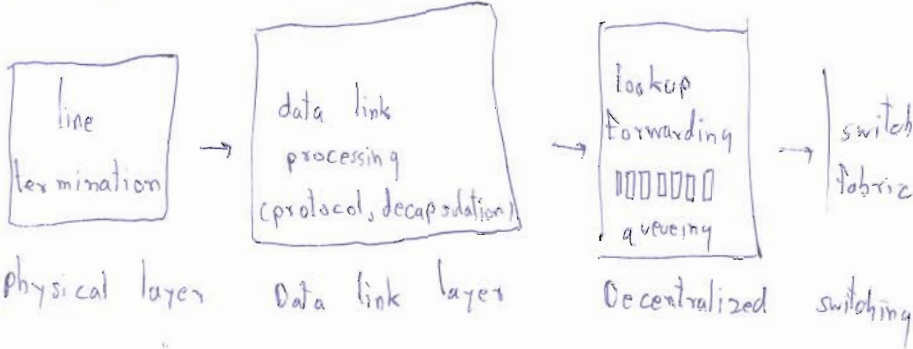 line
termination
data link
processing
(protocol, decapsulation)
lookup
forwarding
queueing
switch
fabric
physical layer
Data link layer
Decentralized switching